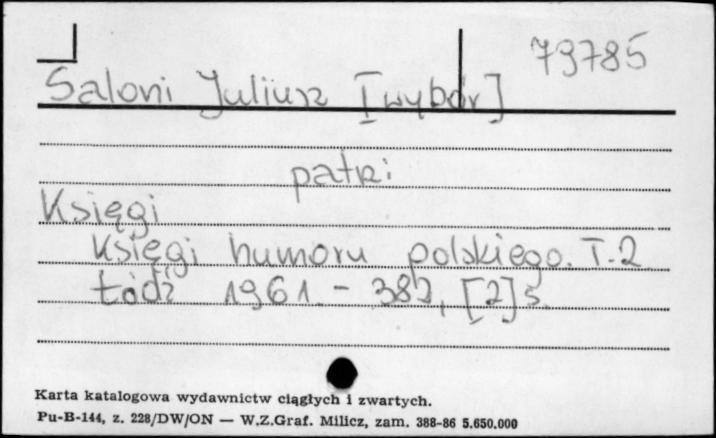 79785
Saloni Juliusz [wybór]
patrz:
Księgi
Księgi humoru polskiego. T.2
Łódź 1961. - 382, [2] s.
Karta katalogowa wydawnictw ciągłych i zwartych.
Pu-B-144, z. 228/DW/ON — W.Z.Graf. Milicz, zam. 388-86 5.650.000